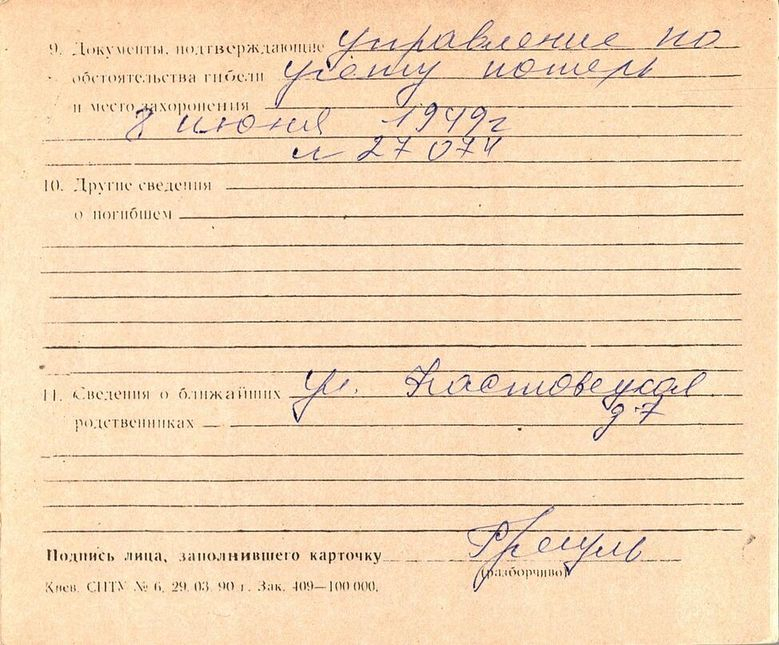 9. Документы, подтверждающие управление по
обстоятельства гибели учету потерь
и место захоронения
8 июня 1949 г
27 074
10. Другие сведения
о погибшем
11. Сведения о ближайших ул.
родственниках д. 7
Подпись лица, заполнившего карточку
(разборчиво)
Киев. СПТУ № 6, 29. 03. 90 г. Зак. 409—100 000.